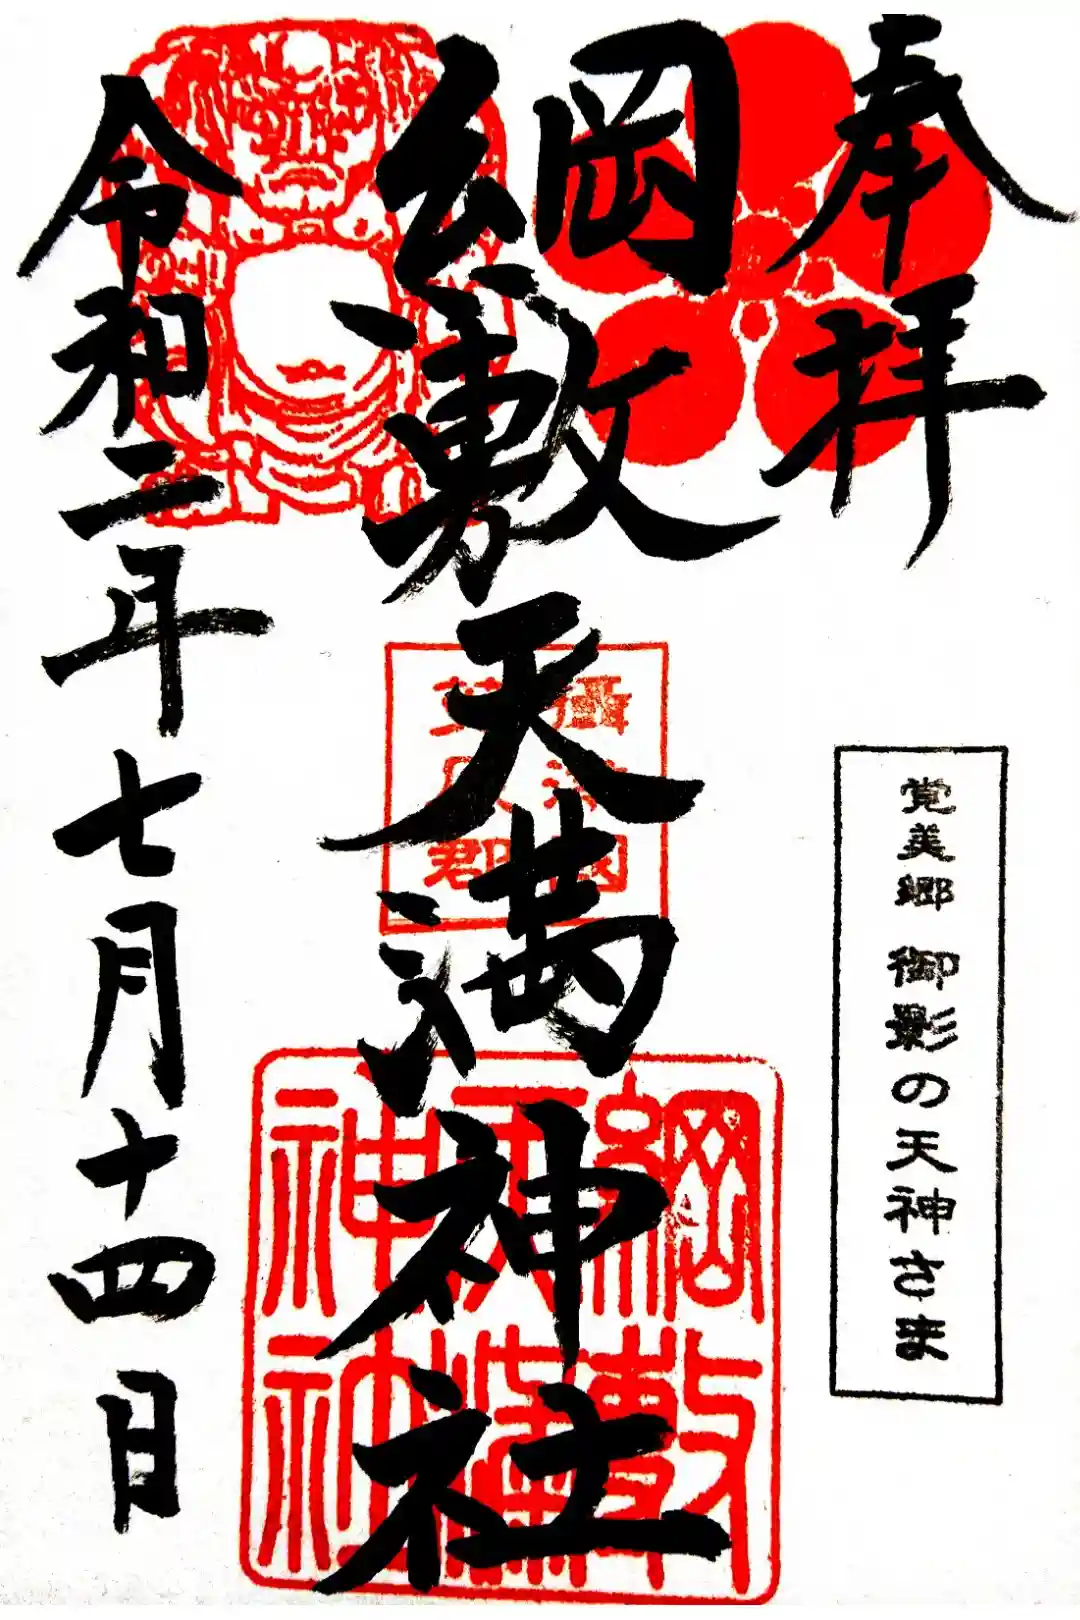 奉拝
覚美郷 御影の天神さま
綱敷天満神社
攝津國
綱敷
天満
神社
令和二年七月十四日